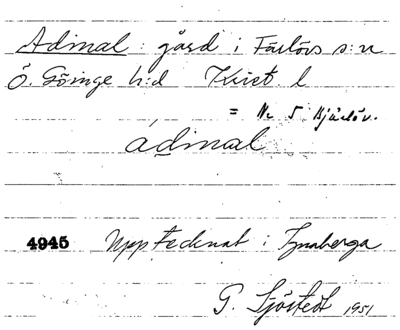 Admal : gård i Färlövs s:n
Ö. Göinge h:d Krist l
= Nr 5 Bjärlöv.
ádmal
4945 Upptecknat i Ignaberga
G. Sjöstedt 1951